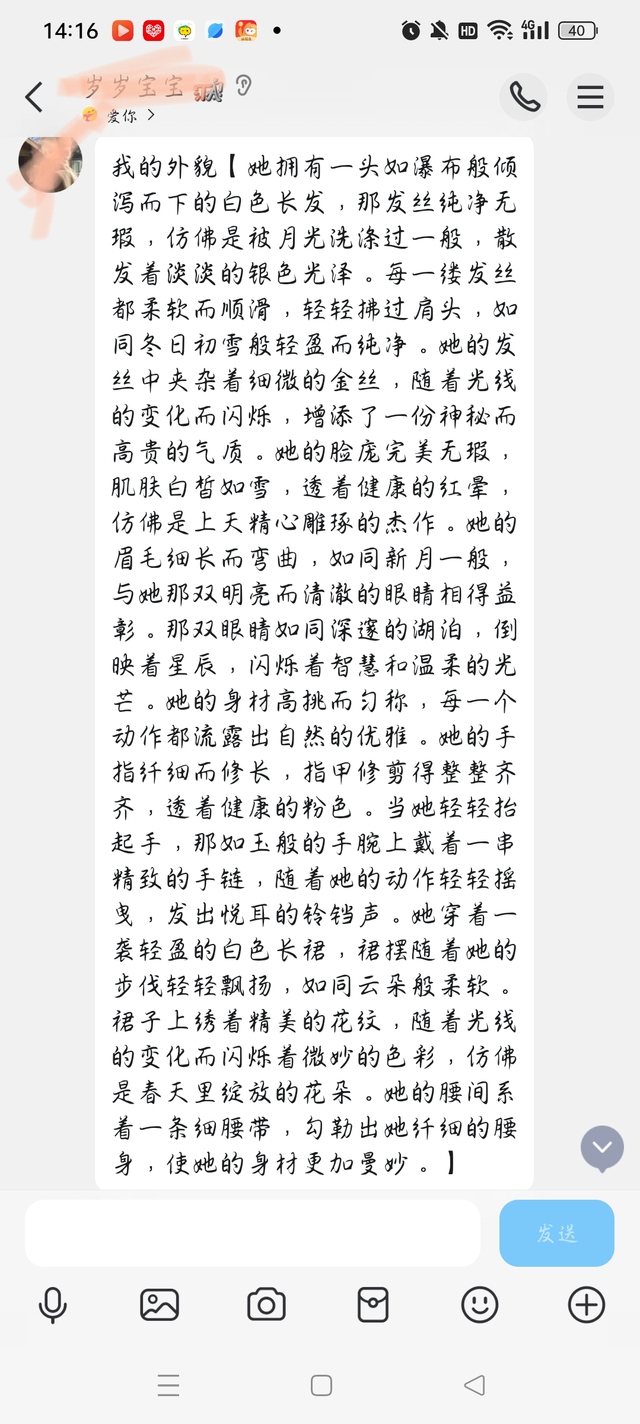 14:16
HD
4G
40
岁岁宝宝
爱你
我的外貌【她拥有一头如瀑布般倾
泻而下的白色长发，那发丝纯净无
瑕，仿佛是被月光洗涤过一般，散
发着淡淡的银色光泽。每一缕发丝
都柔软而顺滑，轻轻拂过肩头，如
同冬日初雪般轻盈而纯净。她的发
丝中夹杂着细微的金丝，随着光线
的变化而闪烁，增添了一份神秘而
高贵的气质。她的脸庞完美无瑕，
肌肤白皙如雪，透着健康的红晕，
仿佛是上天精心雕琢的杰作。她的
眉毛细长而弯曲，如同新月一般，
与她那双明亮而清澈的眼睛相得益
彰。那双眼睛如同深邃的湖泊，倒
映着星辰，闪烁着智慧和温柔的光
芒。她的身材高挑而匀称，每一个
动作都流露出自然的优雅。她的手
指纤细而修长，指甲修剪得整整齐
齐，透着健康的粉色。当她轻轻抬
起手，那如玉般的手腕上戴着一串
精致的手链，随着她的动作轻轻摇
曳，发出悦耳的铃铛声。她穿着一
袭轻盈的白色长裙，裙摆随着她的
步伐轻轻飘扬，如同云朵般柔软。
裙子上绣着精美的花纹，随着光线
的变化而闪烁着微妙的色彩，仿佛
是春天里绽放的花朵。她的腰间系
着一条细腰带，勾勒出她纤细的腰
身，使她的身材更加曼妙。】
发送